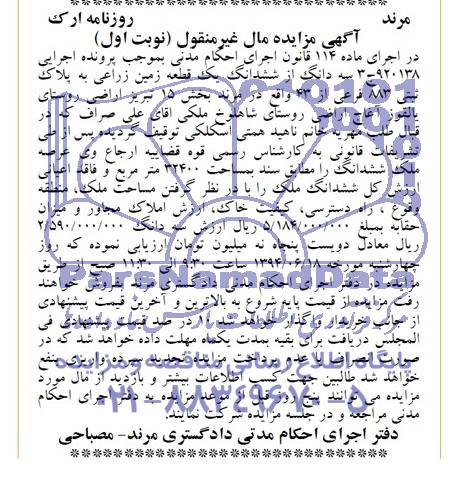 مرند روزنامه ارک
آگهی مزایده مال غیرمنقول (نوبت اول)
در اجرای ماده ۱۱۴ قانون اجرای احکام مدنی بموجب پرونده اجرایی
۳-۹۲۰۱۳۸ سه دانگ از ششدانگ یک قطعه زمین زراعی به پلاک
ثبتی ۸۸۳ فرعی از ۴۳ واقع در مرند بخش ۱۵ تبریز اراضی روستای
یالقوز آغاج اراضی روستای شاهلوخ ملکی آقای علی صراف که در
قبال طلب مهریه خانم ناهید همتی اسکلکی توقیف گردیده پس از طی
تشریفات قانونی به کارشناس رسمی قوه قضاییه ارجاع وی عرصه
ملک ششدانگ را مطابق سند بمساحت ۳۲۴۰۰ متر مربع و فاقد اعیانی
ارزش کل ششدانگ ملک را با در نظر گرفتن مساحت ملک، منطقه
وقوع ، راه دسترسی، کیفیت خاک، ارزش املاک مجاور و میزان
حقابه بمبلغ ۵/۱۸۴/۰۰۰/۰۰۰ ریال ارزش سه دانگ ۲/۵۹۰/۰۰۰/۰۰۰
ریال معادل دویست پنجاه نه میلیون تومان ارزیابی نموده که روز
چهارشنبه مورخه ۱۳۹۴/۰۶/۱۸ ساعت ۹:۳۰ الی ۱۱:۳۰ صبح از طریق
مزایده در دفتر اجرای احکام مدنی دادگستری مرند بفروش خواهند
رفت مزایده از قیمت پایه شروع به بالاترین و آخرین قیمت پیشنهادی
از جانب خریدار واگذار خواهد شد ۱۰ در صد قیمت پیشنهادی فی
المجلس دریافت برای بقیه بمدت یکماه مهلت داده خواهد شد که در
صورت انصراف یا عدم پرداخت مزایده تجدید سپرده واریزی بنفع
خواهد شد طالبین جهت کسب اطلاعات بیشتر و بازدید از مال مورد
مزایده می توانند پنج روز قبل از موعد مزایده به دفتر اجرای احکام
مدنی مراجعه و در جلسه مزایده شرکت نمایند
دفتر اجرای احکام مدنی دادگستری مرند- مصباحی
ParsNamadData
پایگاه اطلاع رسانی مناقصه و مزایده
۰۲۱-۸۸۳۴۹۶۷۰-۵